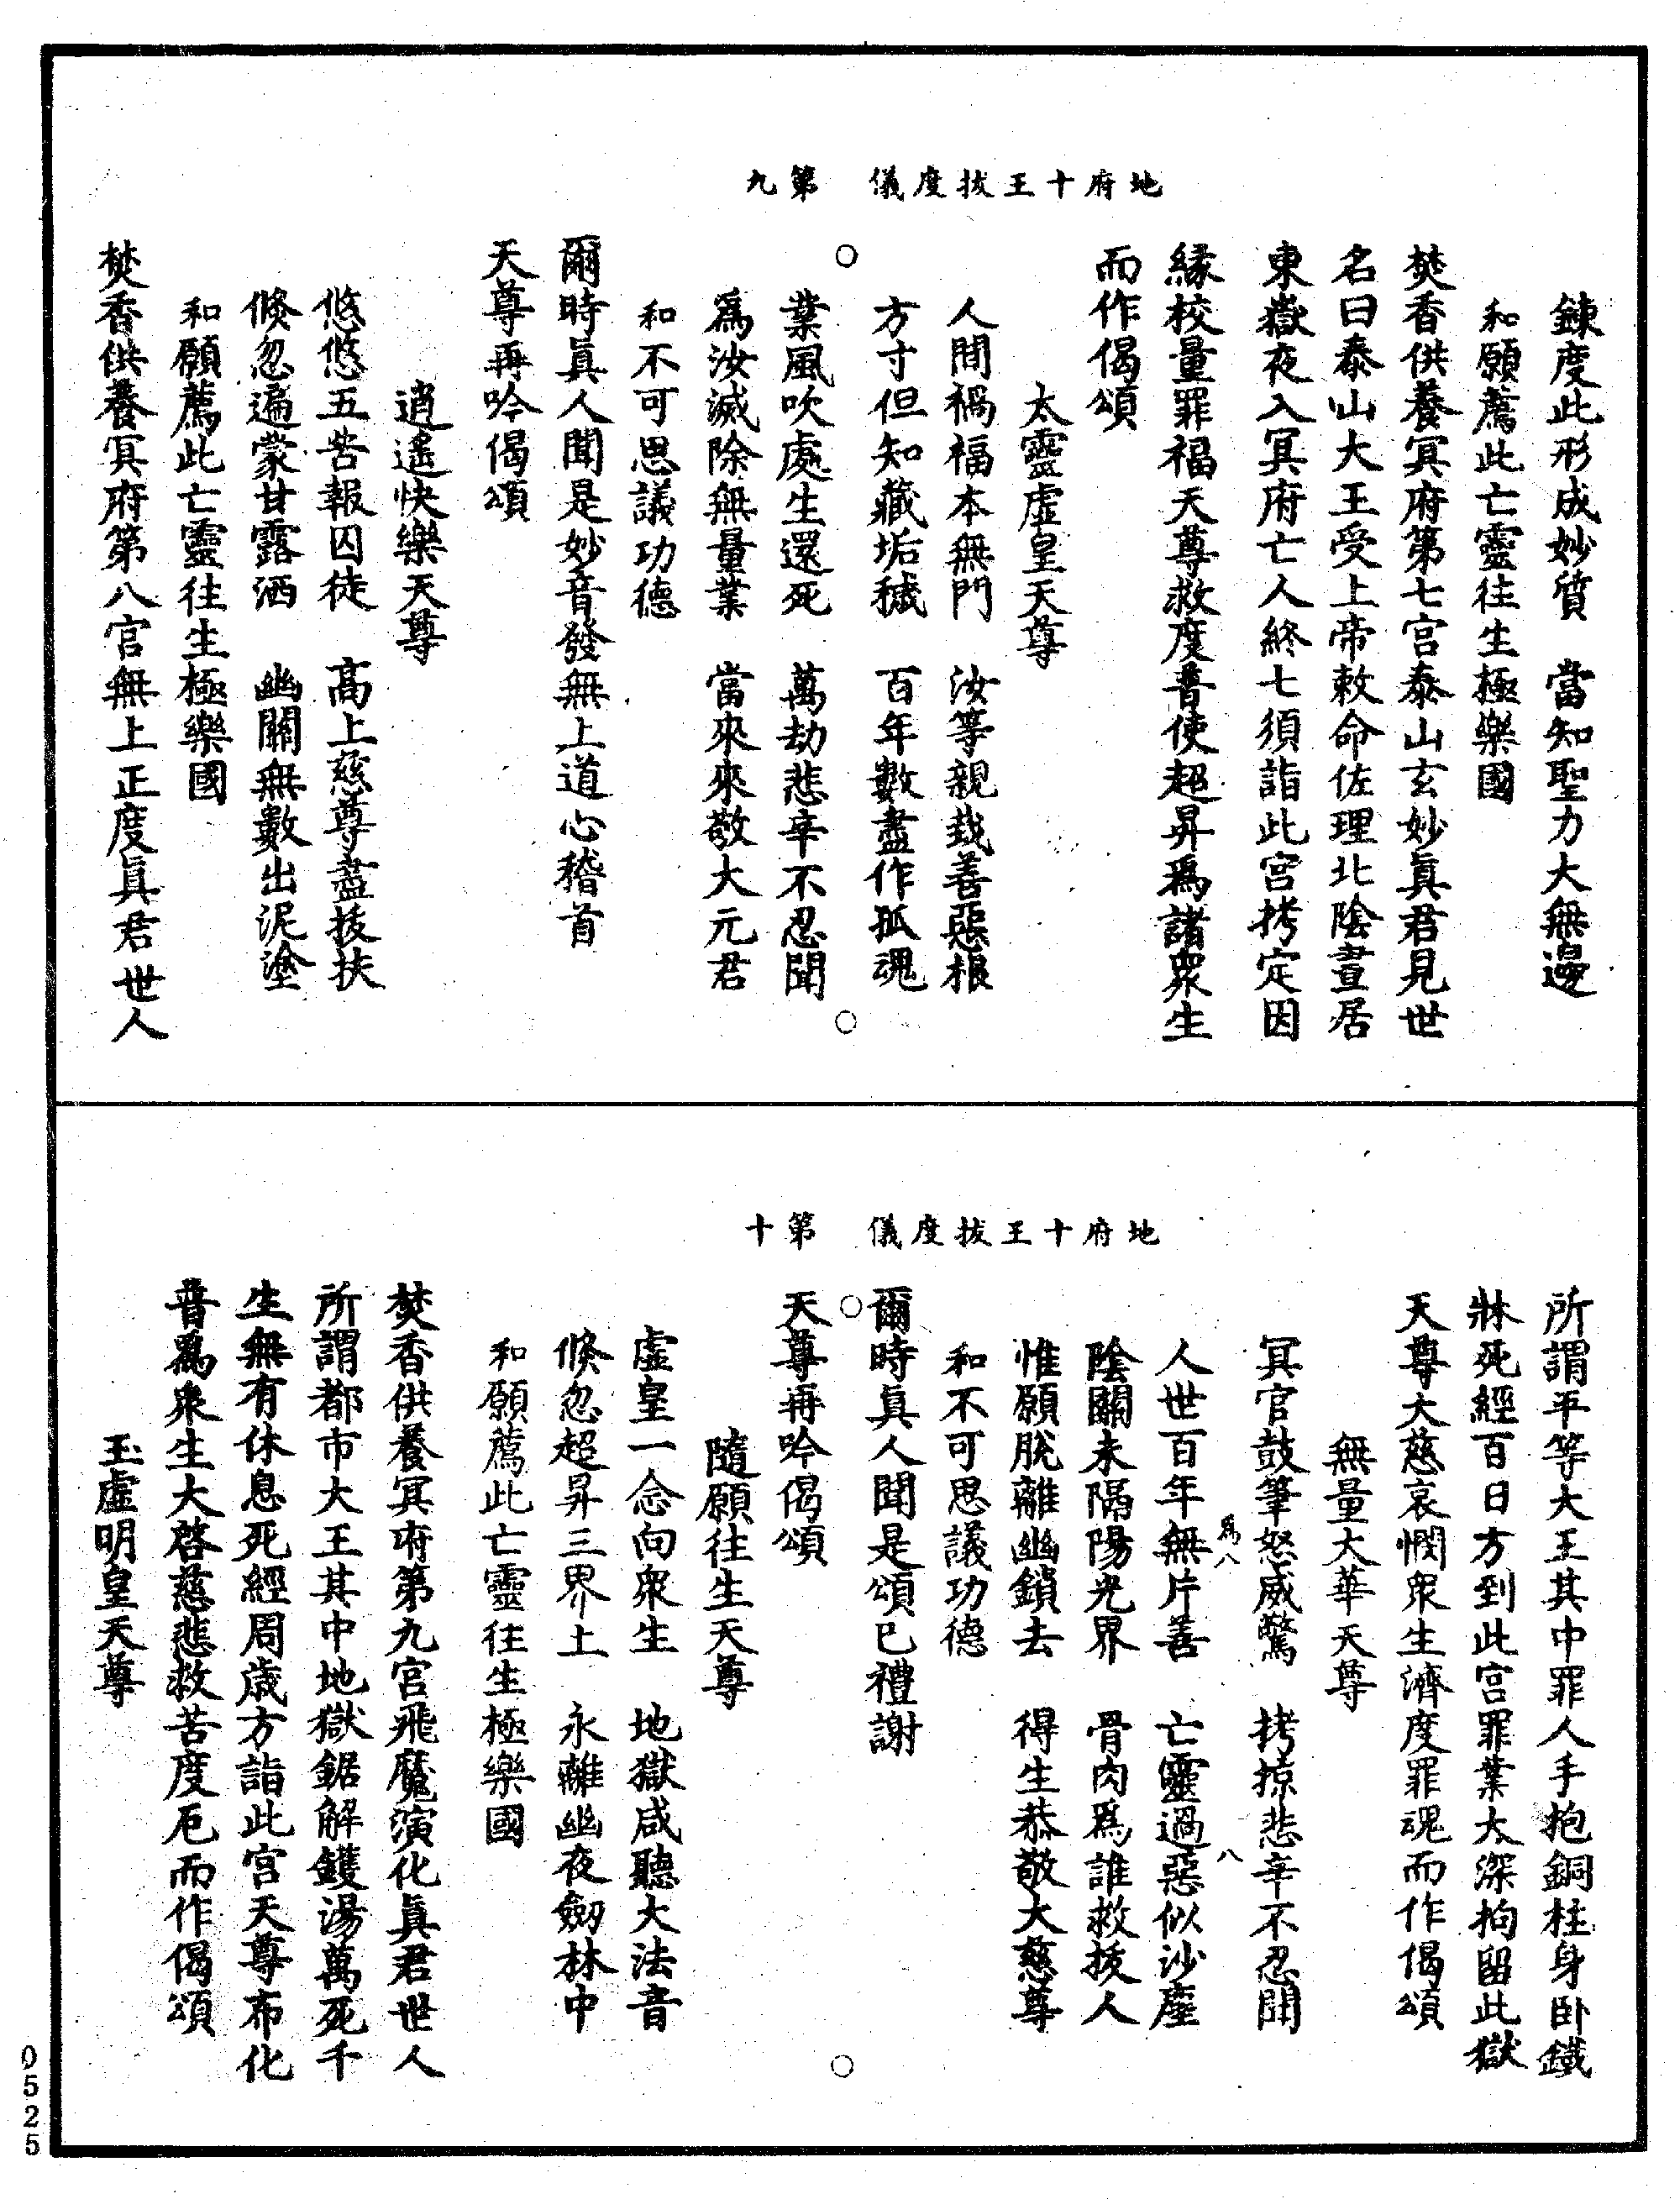 地府十王拔度儀　第九
鍊度此形成妙質　當知聖力大無邊
和願薦此亡靈往生極樂國
焚香供養冥府第七宮泰山玄妙眞君見世
名曰泰山大王受上帝敕命佐理北陰晝居
東嶽夜入冥府亡人終七須詣此宮拷定因
緣校量罪福天尊救度普使超昇爲諸衆生
而作偈頌
太靈虛皇天尊
人間禍福本無門　汝等親栽善惡根
方寸但知藏垢穢　百年數盡作孤魂
業風吹處生還死　萬劫悲辛不忍聞
爲汝滅除無量業　當來來敬大元君
和不可思議功德
爾時眞人聞是妙音發無上道心稽首
天尊再吟偈頌
逍遙快樂天尊
悠悠五苦報囚徒　高上慈尊盡拔扶
倐忽遍蒙甘露洒　幽關無數出泥塗
和願薦此亡靈往生極樂國
焚香供養冥府第八宮無上正度眞君世人
地府十王拔度儀　第十
所謂平等大王其中罪人手抱銅柱身臥鐵
牀死經百日方到此宮罪業太深拘留此獄
天尊大慈哀憫衆生濟度罪魂而作偈頌
無量大華天尊
冥官鼓筆怒威驚　拷掠悲辛不忍聞
爲八　八
人世百年無片善　亡靈過惡似沙塵
陰關未隔陽光界　骨肉爲誰救拔人
惟願脫離幽鎖去　得生恭敬大慈尊
和不可思議功德
爾時眞人聞是頌已禮謝
天尊再吟偈頌
隨願往生天尊
虛皇一念向衆生　地獄咸聽大法音
倐忽超昇三界上　永離幽夜劒林中
和願薦此亡靈往生極樂國
焚香供養冥府第九宮飛魔演化眞君世人
所謂都市大王其中地獄鋸解鑊湯萬死千
生無有休息死經周歲方詣此宮天尊布化
普爲衆生大啓慈悲救苦度厄而作偈頌
玉虛明皇天尊
0525